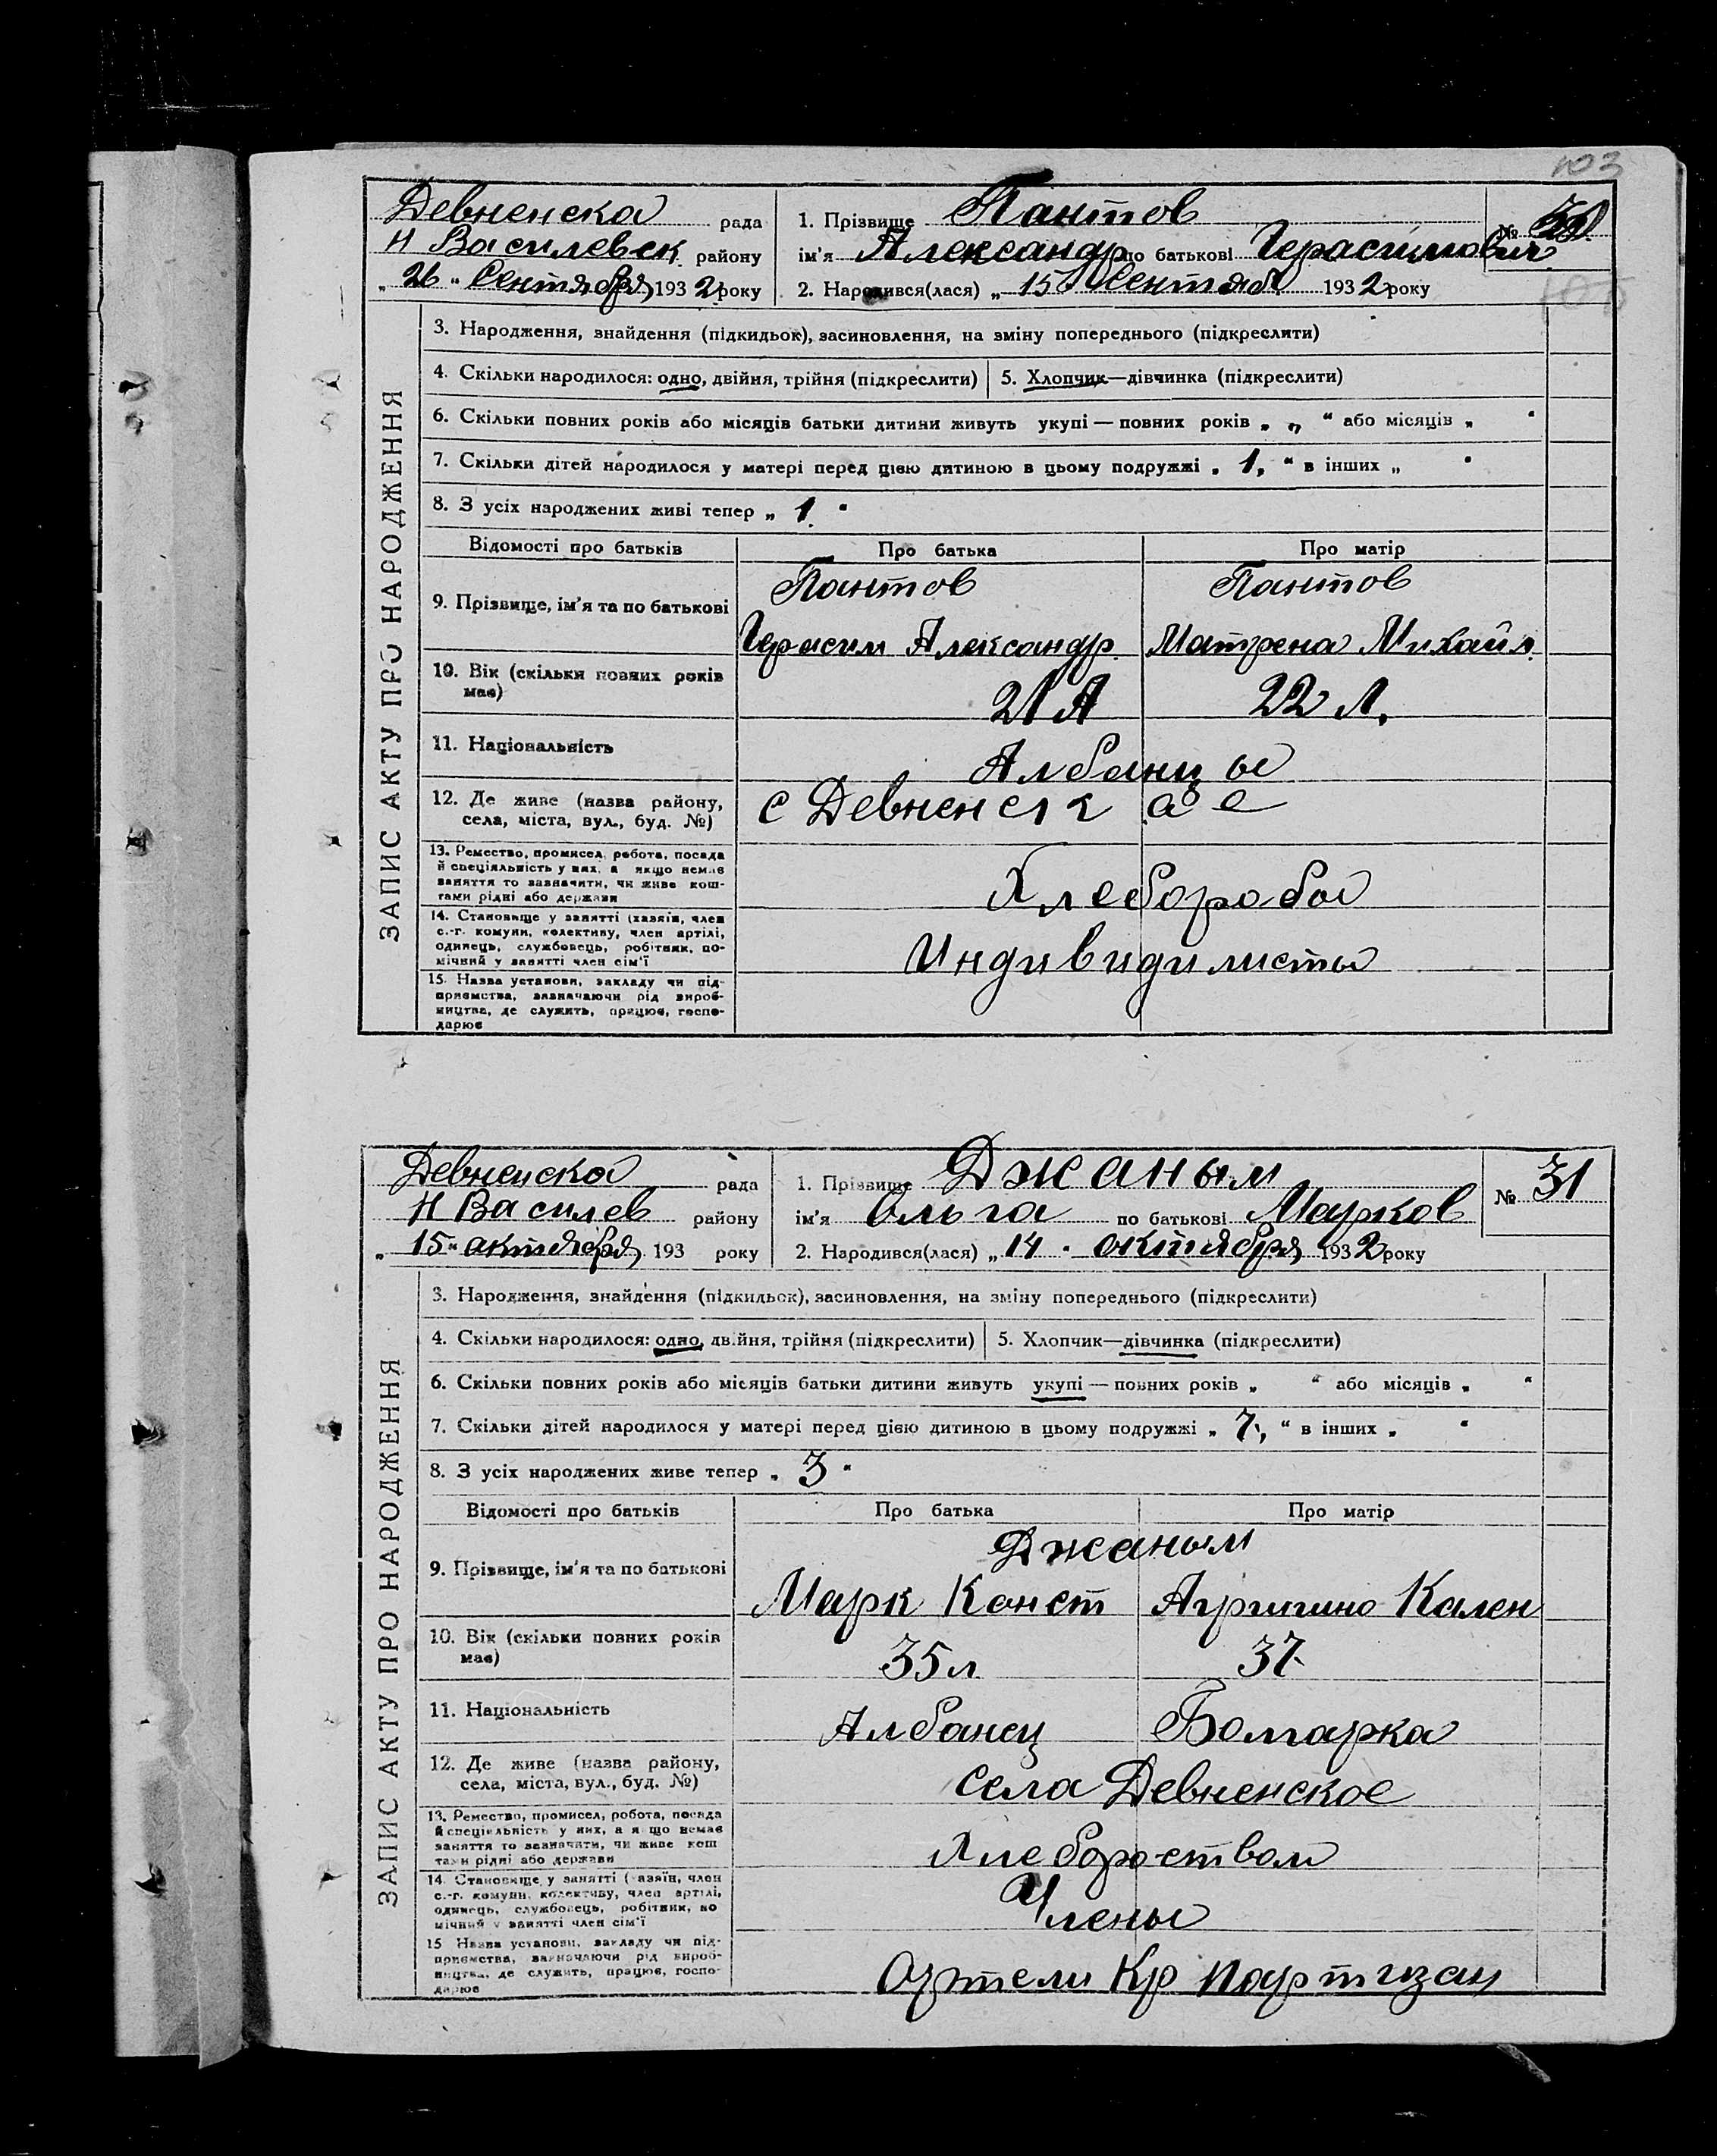 103
Девненска рада
Н Василевск району
„ 26 " Сентября 1932 року
1. Прізвище Пантов
№ 30
ім'я Александр по батькові Герасимович
2. Народився(лася) „ 15 Сентяб 1932 року
ЗАПИС АКТУ ПРО НАРОДЖЕННЯ
3. Народження, знайдення (підкидьок), засиновлення, на зміну попереднього (підкреслити)
4. Скільки народилося: одно, двійня, трійня (підкреслити) 5. Хлопчик—дівчинка (підкреслити)
6. Скільки повних років або місяців батьки дитини живуть укупі — повних років „ „ " або місяців „ "
7. Скільки дітей народилося у матері перед цією дитиною в цьому подружжі „ 1, " в інших „ "
8. З усіх народжених живі тепер „ 1. "
Відомості про батьків Про батька Про матір
9. Прізвище, ім'я та по батькові
Пантов Пантов
Герасим Александр. Матрена Михайл.
10. Вік (скільки повних років має)
21 Л 22 Л.
11. Національність
Албанцы
12. Де живе (назва району,
села, міста, вул., буд. №)
с Девненск ое
13. Ремество, промисел, робота, посада
й спеціяльність у них, а якщо немає
заняття то зазначити, чи живе кош-
тами рідні або держави
Хлеборобы
14. Становище у занятті (хазяїн, член
с.-г. комуни, колективу, член артілі,
одинець, службовець, робітник, по-
мічний у занятті член сім'ї
Индивидилисты
15. Назва установи, закладу чи під-
приємства, зазначаючи рід вироб-
ництва, де служить, працює, госпо-
дарює
Девненска рада
Н Василев району
„ 15 " октября 193 року
1. Прізвище Джаным
№ 31
ім'я Ольга по батькові Марков
2. Народився(лася) „ 14 . октября 1932 року
ЗАПИС АКТУ ПРО НАРОДЖЕННЯ
3. Народження, знайдення (підкидьок), засиновлення, на зміну попереднього (підкреслити)
4. Скільки народилося: одно, двійня, трійня (підкреслити) 5. Хлопчик—дівчинка (підкреслити)
6. Скільки повних років або місяців батьки дитини живуть укупі — повних років „ " або місяців „ "
7. Скільки дітей народилося у матері перед цією дитиною в цьому подружжі „ 7, " в інших „ "
8. З усіх народжених живе тепер „ 3 "
Відомості про батьків Про батька Про матір
9. Прізвище, ім'я та по батькові
Джаным
Марк Конст Кален
10. Вік (скільки повних років
має)
35 л 37
11. Національність
Албанец Болгарка
12. Де живе (назва району,
села, міста, вул., буд. №)
села Девненское
13. Ремество, промисел, робота, посада
й спеціяльність у них, а якщо немає
заняття то зазначити, чи живе кош
тами рідні або держави
Хлебороством
14. Становище у занятті (хазяїн, член
с.-г. комуни, колективу, член артілі,
одинець, службовець, робітник, по
мічний у занятті член сім'ї
Члены
15 Назва установи, закладу чи під-
приємства, зазначаючи рід вироб-
ництва, де служить, працює, госпо-
дарює
Артели Кр партизан